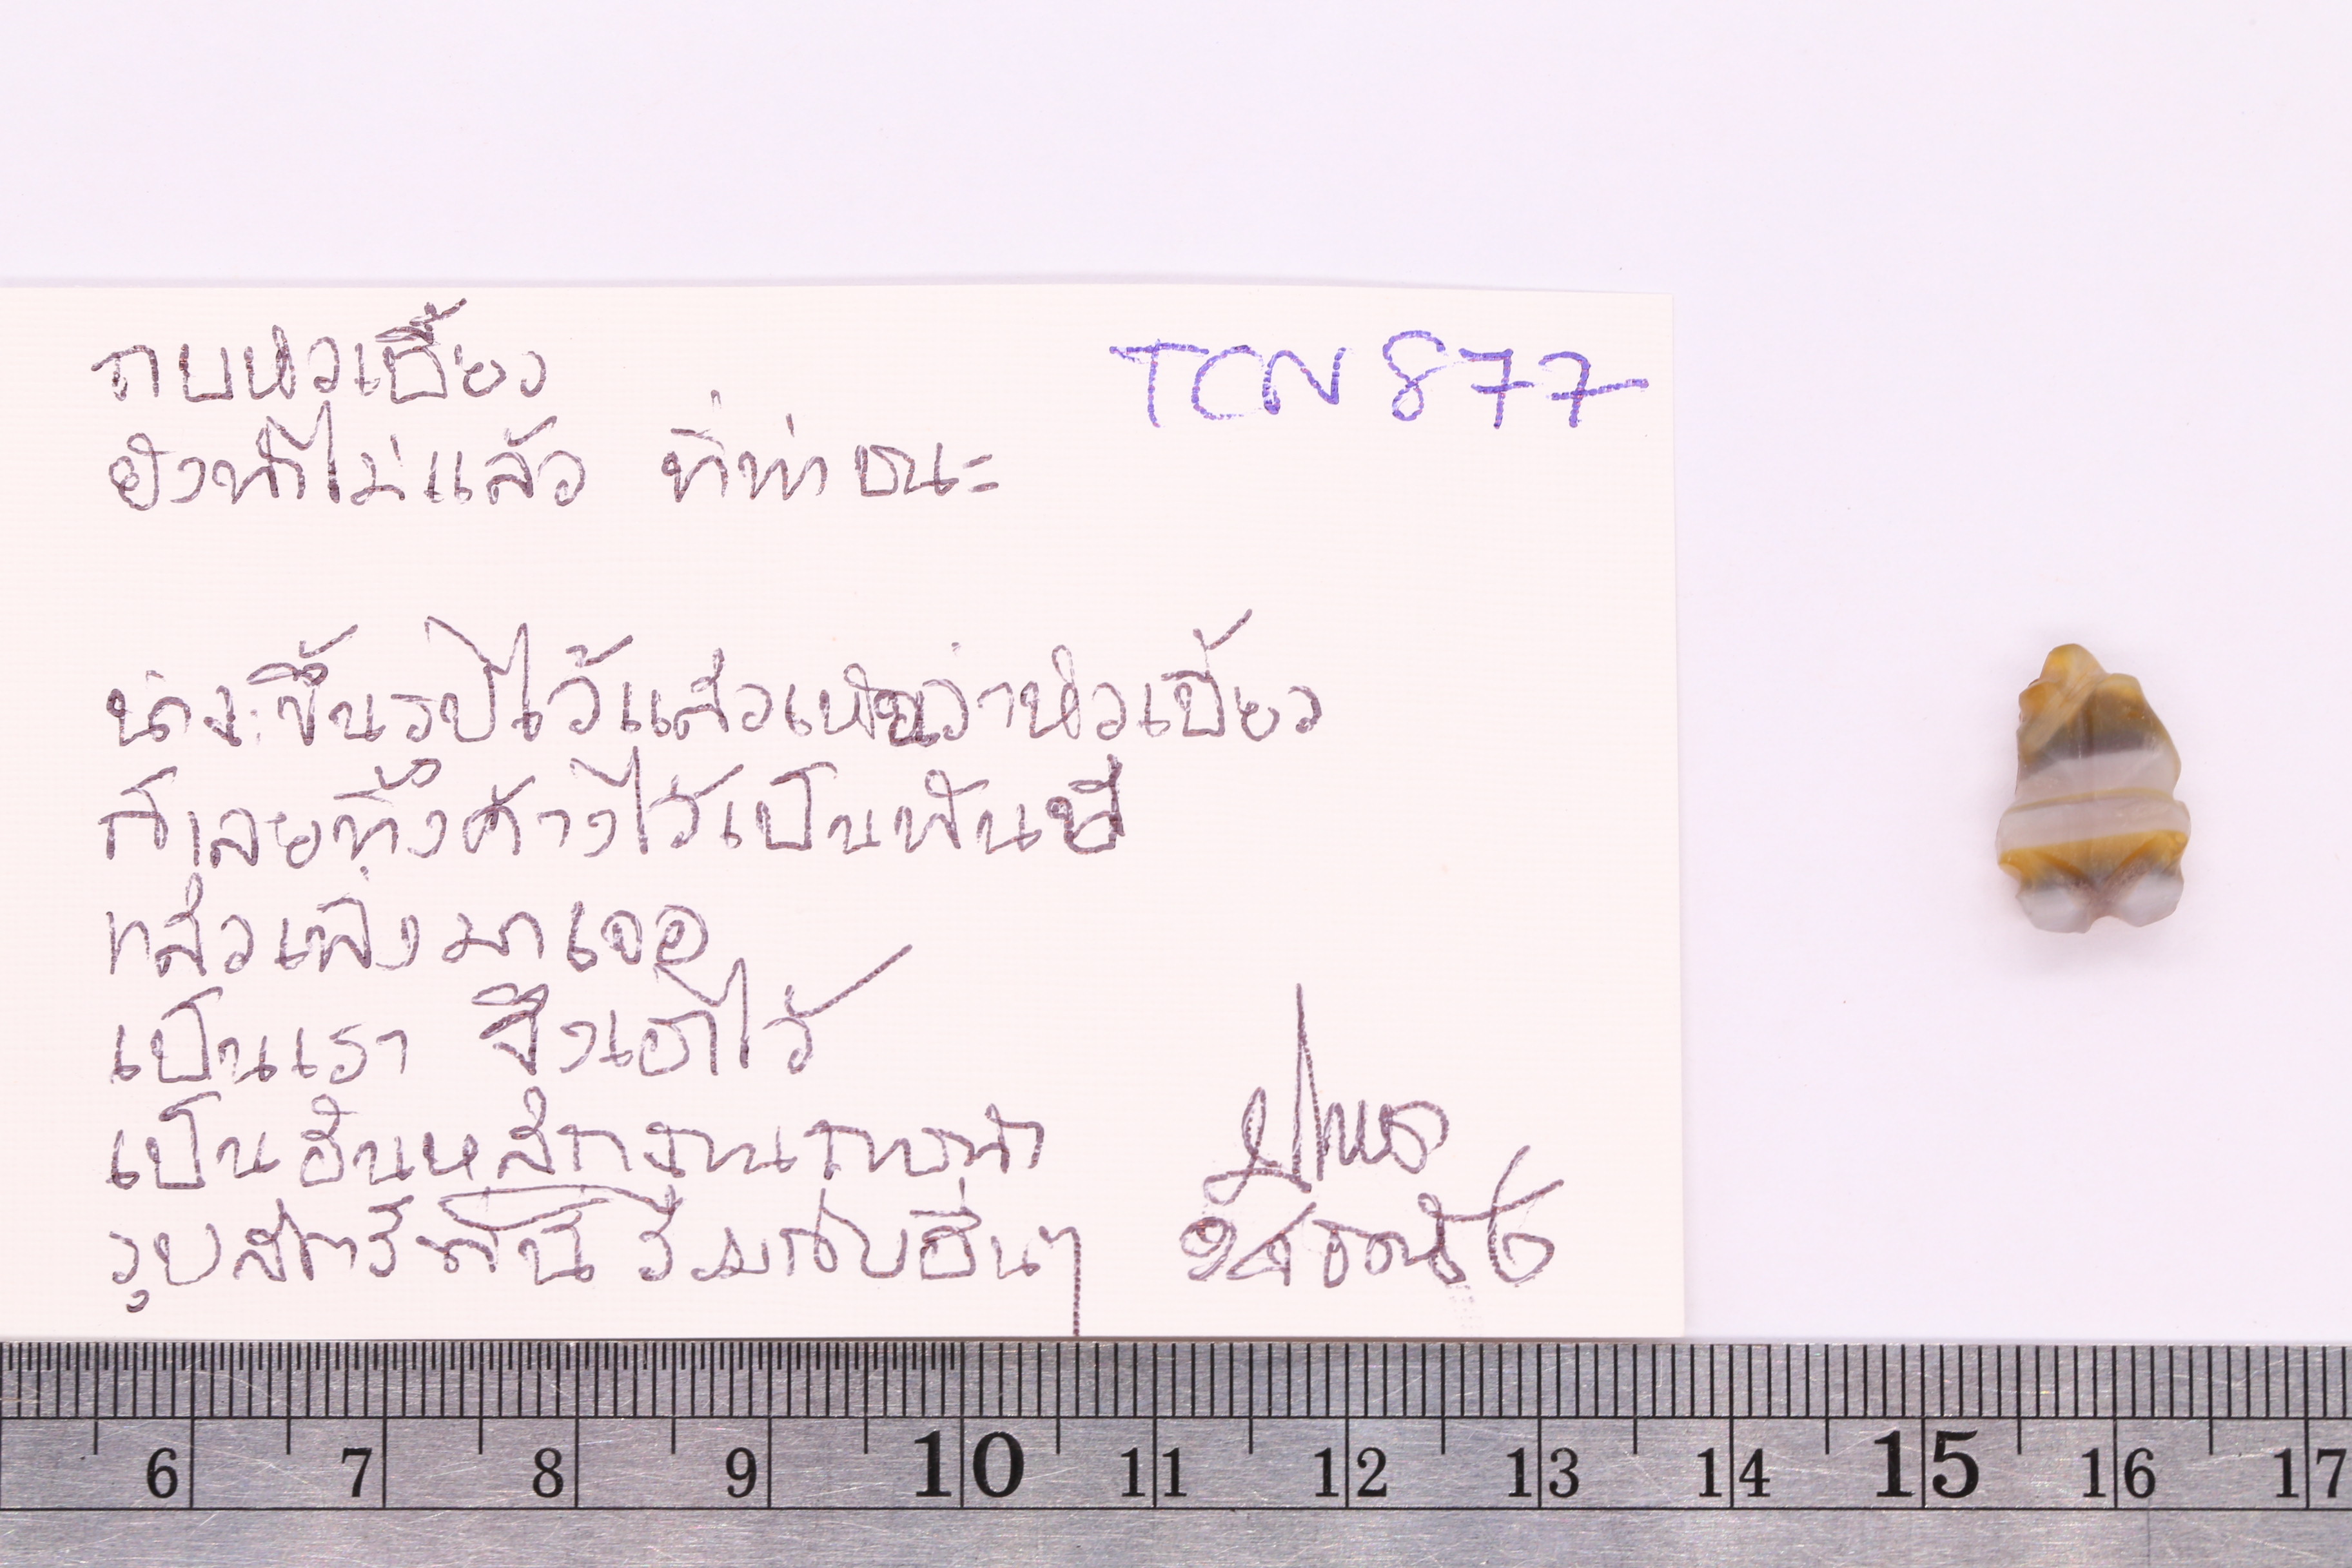 กบหัวเบี้ยว
TCN 877
ยังทำไม่แล้ว ที่ท่าชนะ
น่าจะขึ้นรูปไว้แล้วเห็นว่าหัวเบี้ยว
ก็เลยทิ้งค้างไว้เป็นพันปี
แล้วเพิ่งมาเจอ
เป็นเรา จึงเอาไว้
เป็นอันหลักฐานการทำ
รูปสัตว์ที่นี่ร่วมกับอื่นๆ
6 7 8 9 10 11 12 13 14 15 16 17